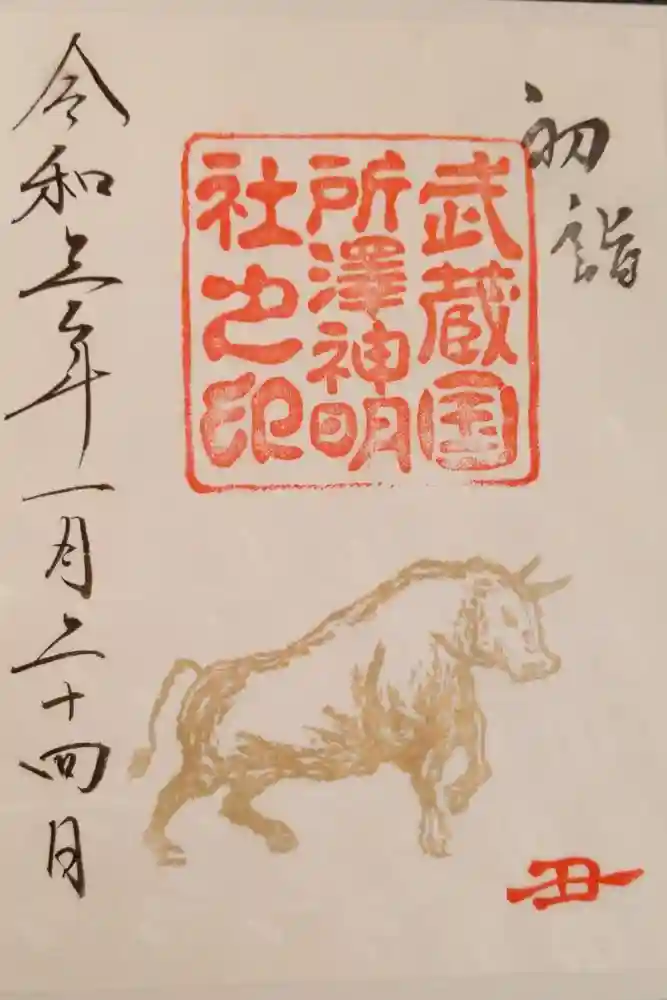 初詣
武蔵国
所澤神明
社之印
丑
令和三年一月二十四日